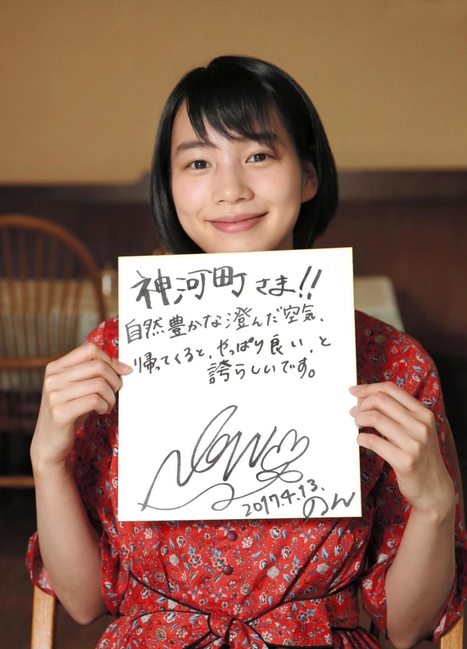 神河町さま!!
自然豊かな澄んだ空気、
帰ってくると、やっぱり良い、と
誇らしいです。
Non
2017.4.13.
のん